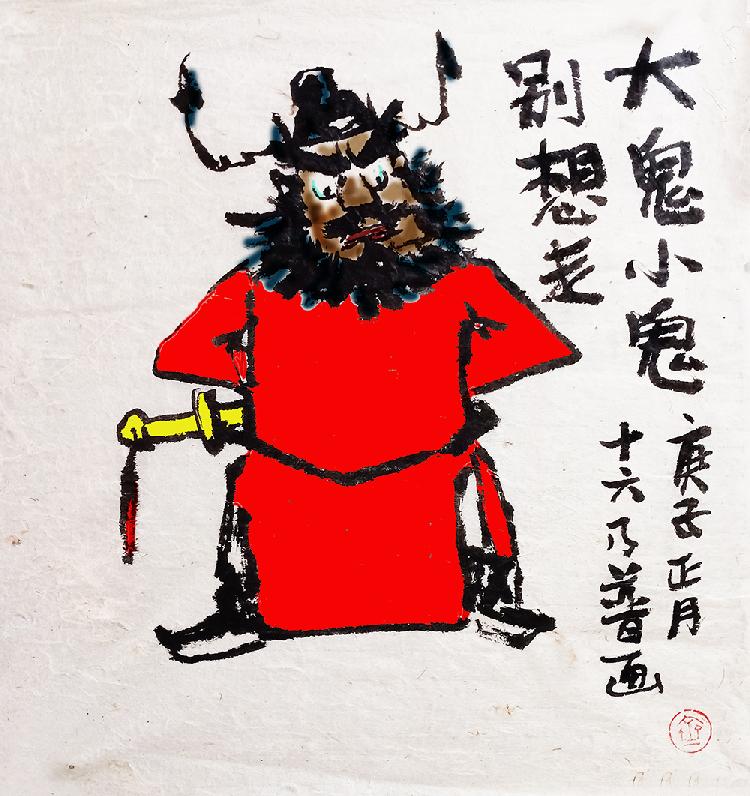 大鬼小鬼
别想走
庚子正月
十六乃普画